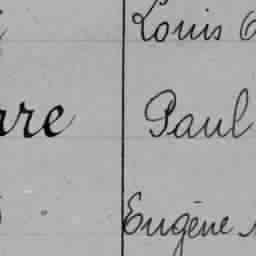 Louis
are Paul
Eugène